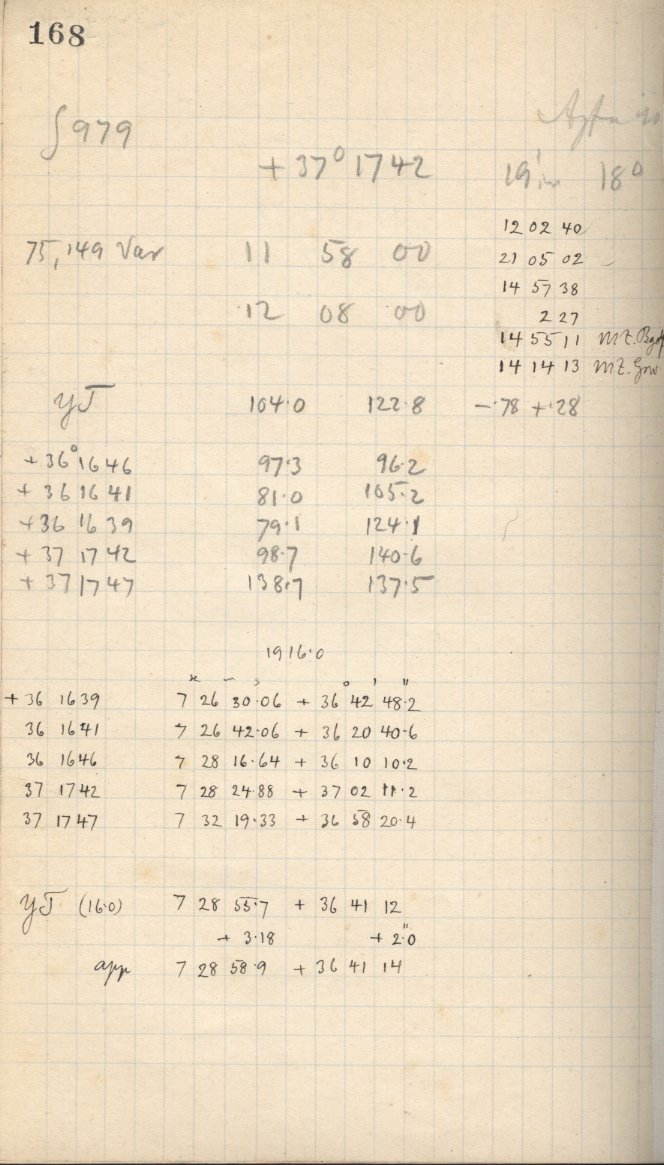 168
∫979
+37° 1742 19in 18°
12 02 40
75,149 Var 11 58 00 21 05 02
14 57 38
12 08 00 2 27
14 55 11 MZ.
14 14 13 MZ. Grw
YJ 104.0 122.8 -.78 +.28
+36° 1646 97.3 96.2
+36 1641 81.0 105.2
+36 1639 79.1 124.1
+37 1742 98.7 140.6
+37 1747 138.7 137.5
1916.0
h m s ° ' "
+36 1639 7 26 30.06 + 36 42 48.2
36 1641 7 26 42.06 + 36 20 40.6
36 1646 7 28 16.64 + 36 10 10.2
37 1742 7 28 24.88 + 37 02 11.2
37 1747 7 32 19.33 + 36 58 20.4
YJ (16.0) 7 28 55.7 + 36 41 12
+ 3.18 + 2".0
app 7 28 58.9 + 36 41 14